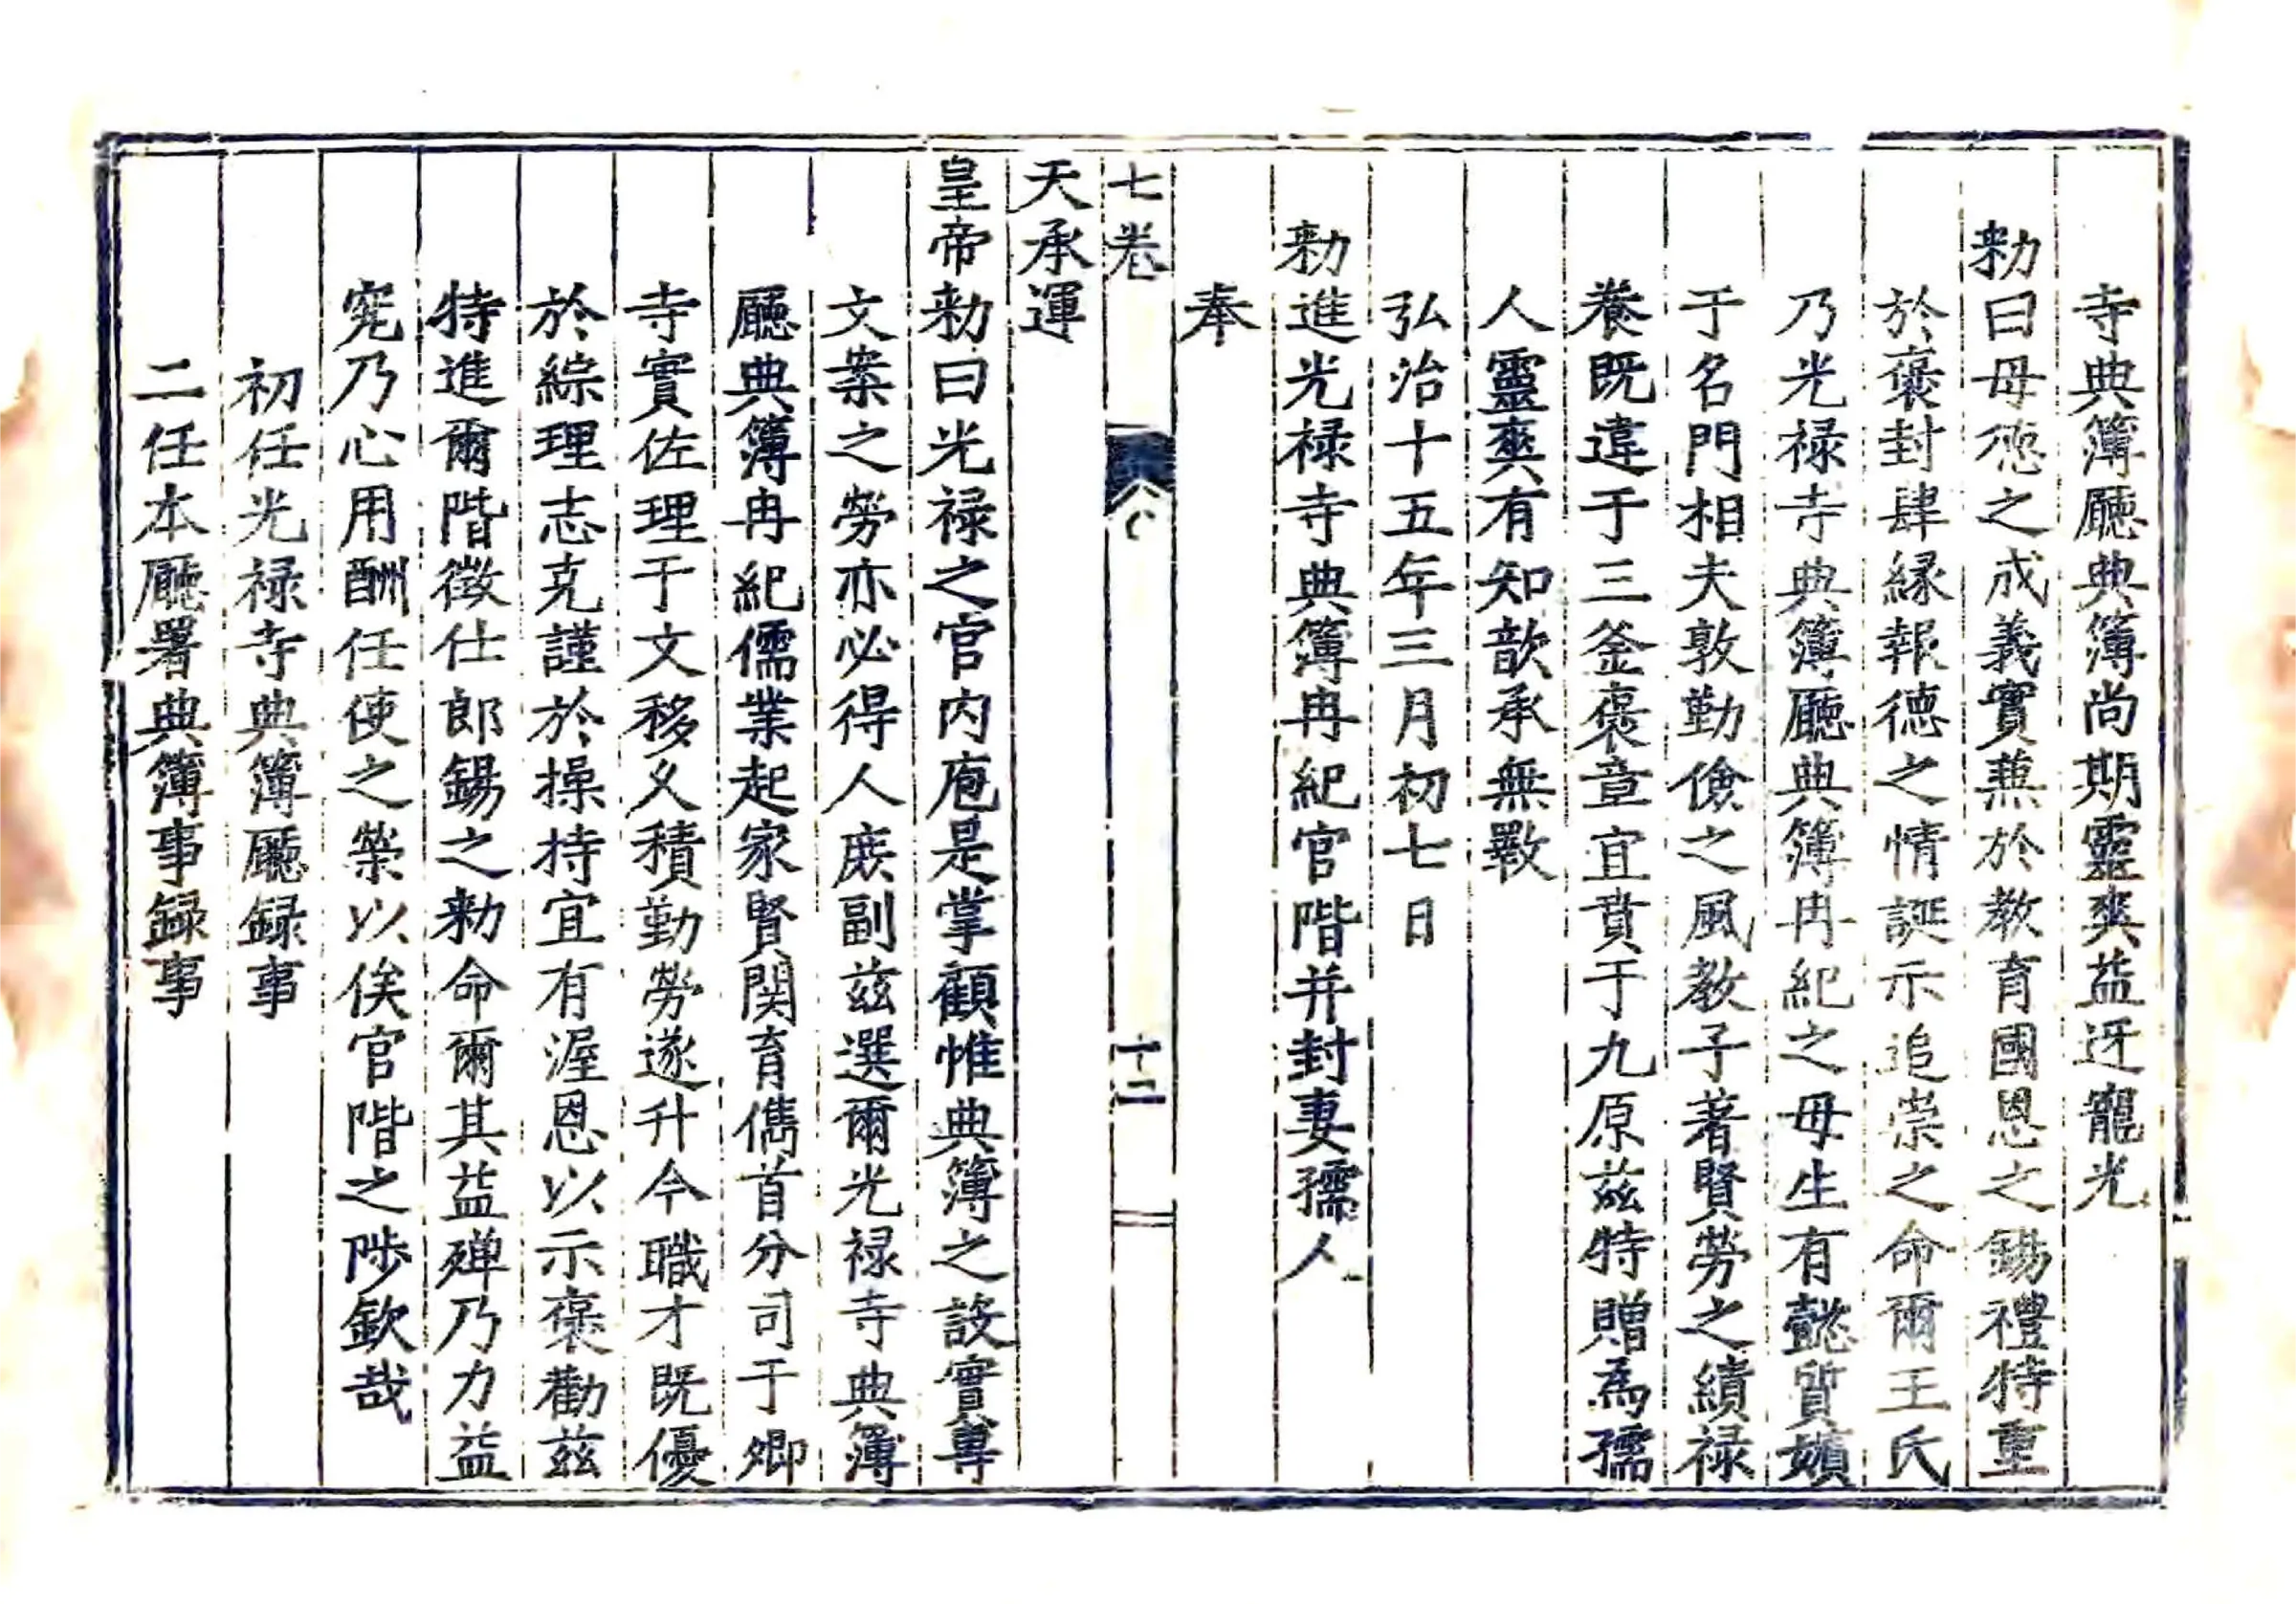 寺典簿廳典簿尚期靈爽益迓寵光
勑曰母德之成義實蕪於教育國恩之錫禮特重
於褒封肆縁報德之情誕示追崇之命爾王氏
乃光禄寺典簿廳典簿冉紀之母生有懿質嬪
于名門相夫敦勤儉之風教子著賢勞之績禄
養既違于三釜褒章宜賁于九原茲特贈為孺
人靈爽有知歆承無斁
弘治十五年三月初七日
勑進光禄寺典簿冉紀官階并封妻孺人
奉
七卷 十二
天承運
皇帝勑曰光禄之官内庖是掌顧惟典簿之設實專
文案之勞亦必得人庻副茲選爾光禄寺典簿
廳典簿冉紀儒業起家賢関育儁首分司于卿
寺實佐理于文移乂積勤勞遂升今職才既優
於綜理志克謹於操持宜有渥恩以示褒勸茲
特進爾階徵仕郎錫之勑命爾其益殫乃力益
究乃心用酬任使之榮以俟官階之陟欽哉
初任光禄寺典簿廳録事
二任本廳署典簿事録事